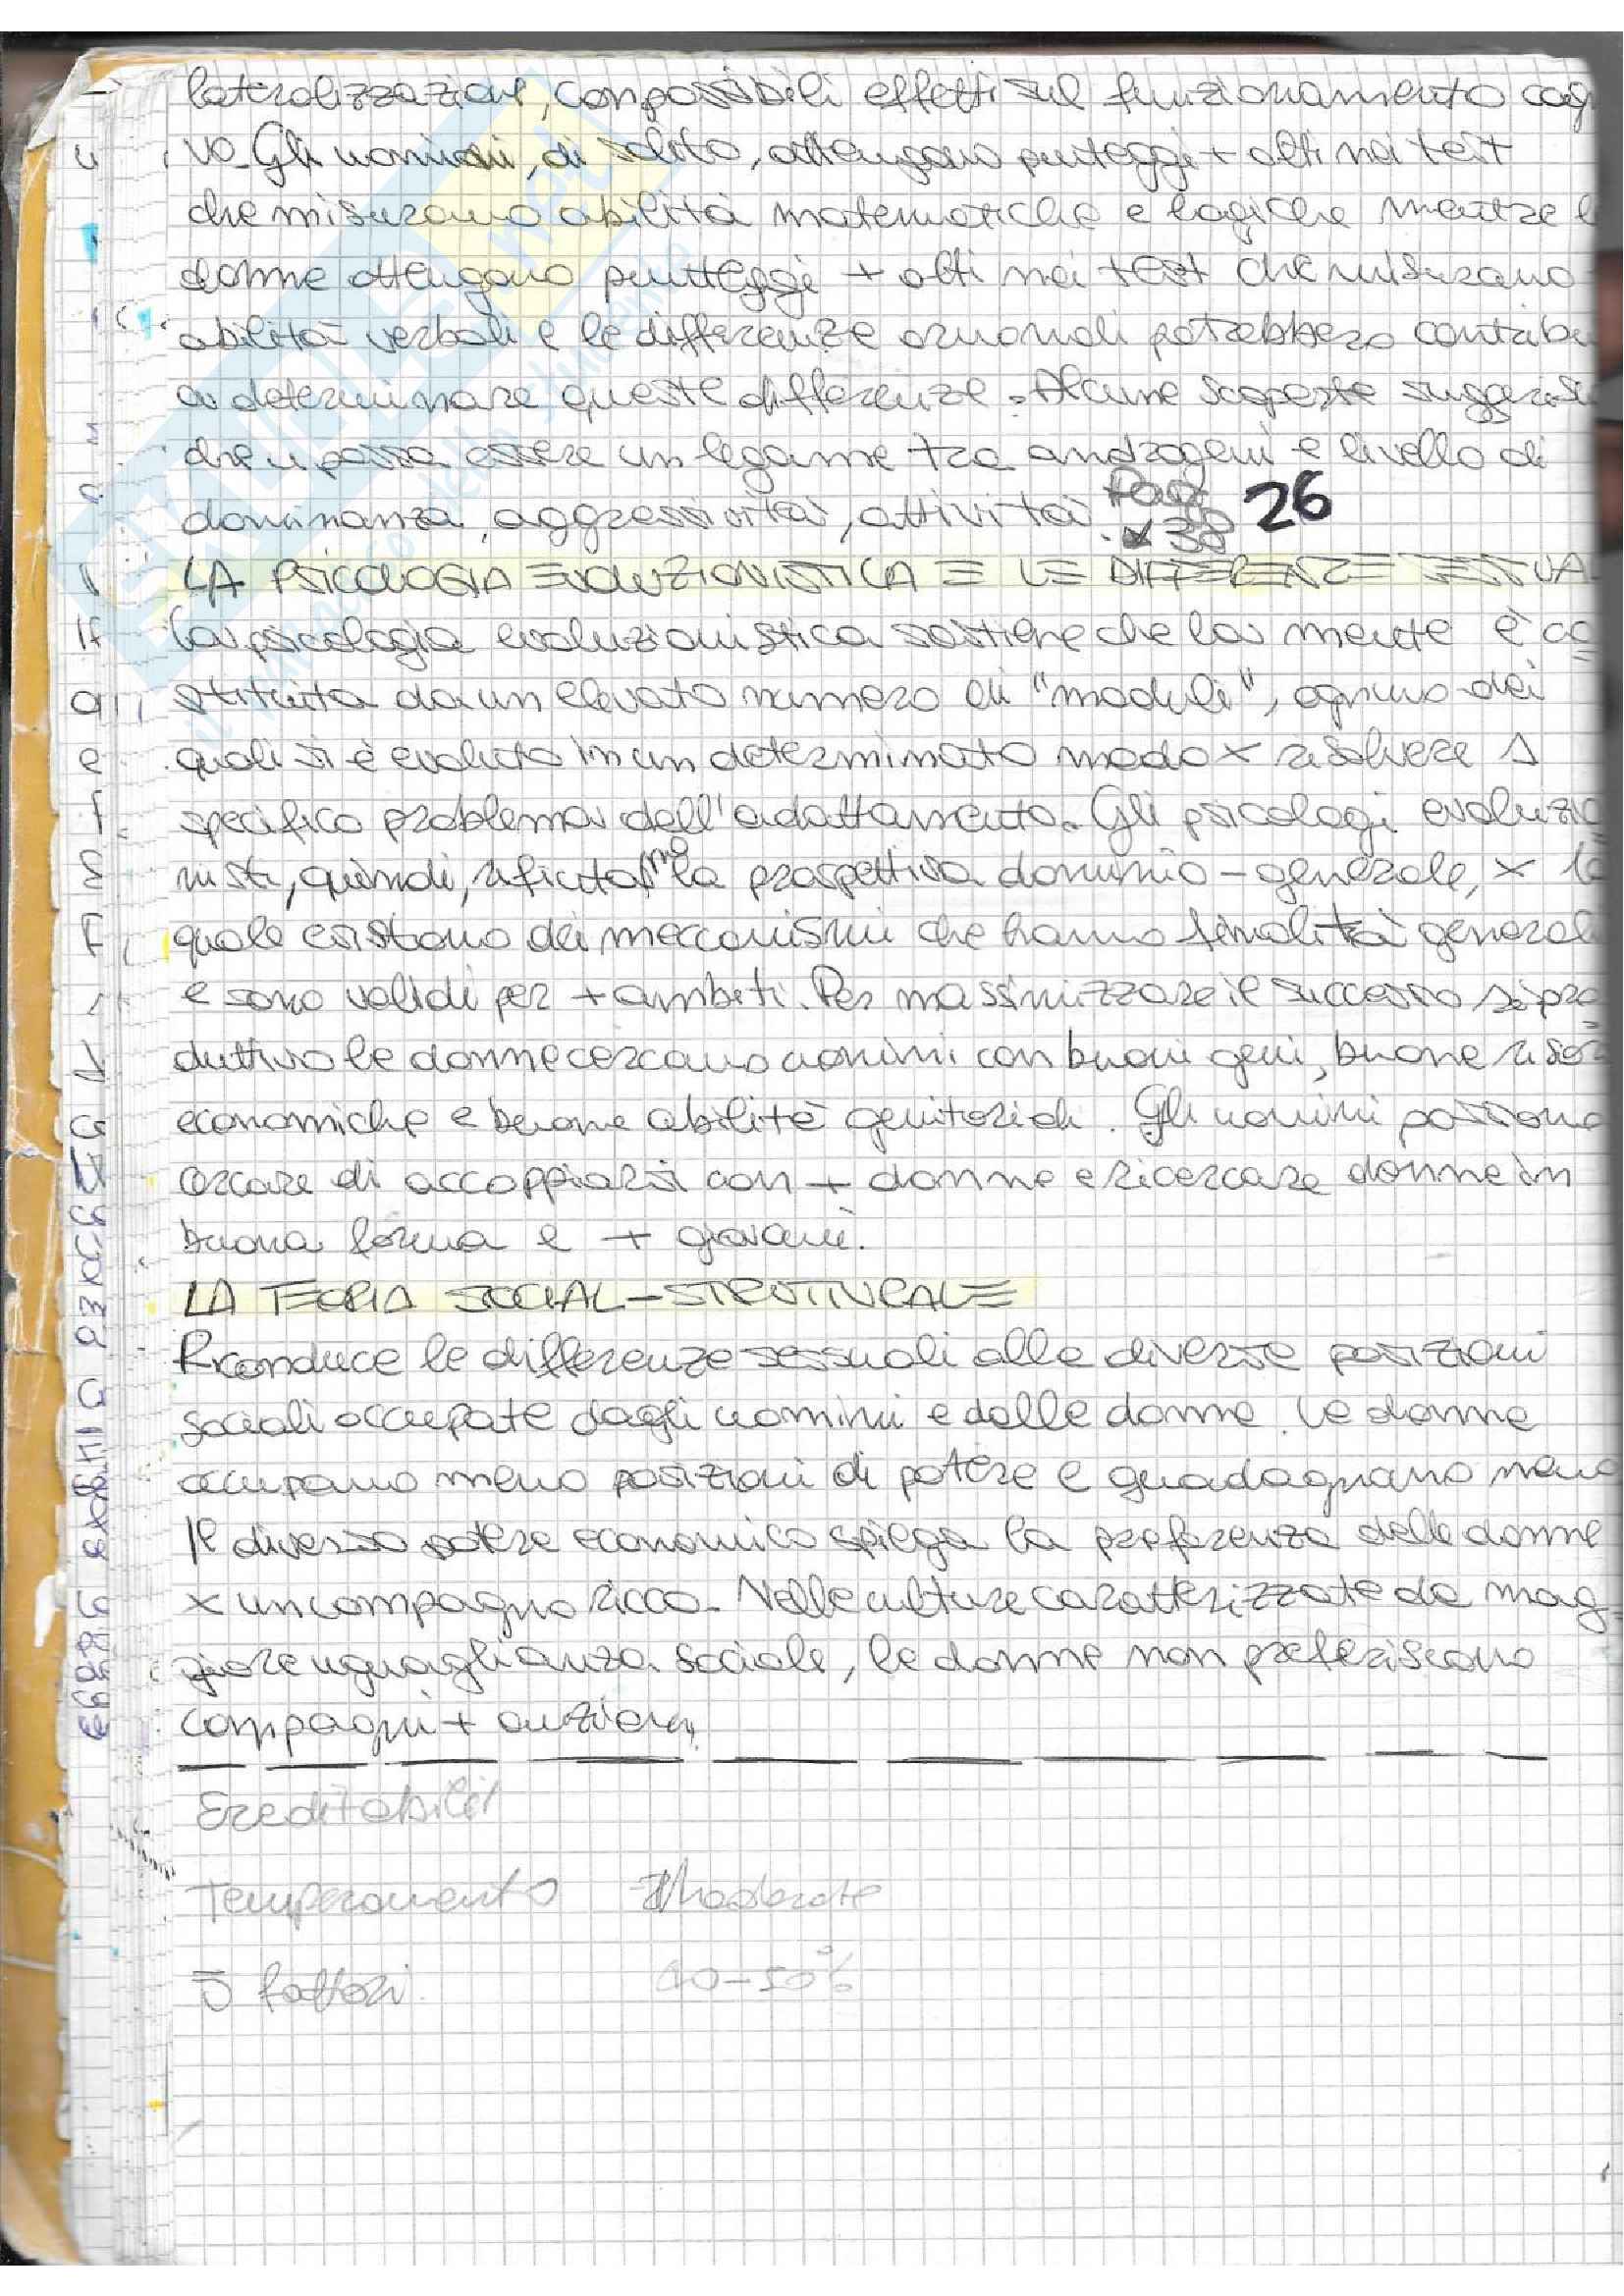 lateralizzazione, con possibili effetti sul funzionamento cog
vo. Gli uomini, di solito, ottengono punteggi + alti nei test
che misurano abilità matematiche e logiche mentre l
donne ottengono punteggi + alti nei test che misurano
abilità verbali e le differenze ormonali potrebbero contribu
a determinare queste differenze. Alcune scoperte suggerisc
che vi possa essere un legame tra androgeni e livello di
dominanza, aggressività, attività. Pag 26
x 38
LA PSICOLOGIA EVOLUZIONISTICA E LE DIFFERENZE SESSUA
La psicologia evoluzionistica sostiene che la mente è co
stituita da un elevato numero di "moduli", ognuno dei
quali si è evoluto in un determinato modo x risolvere 1
specifico problema dell'adattamento. Gli psicologi evoluzio
nisti, quindi, rifiutano la prospettiva dominio-generale, x la
quale esistono dei meccanismi che hanno finalità generali
e sono validi per + ambiti. Per massimizzare il successo ripro
duttivo le donne cercano uomini con buoni geni, buone risor
economiche e buone abilità genitoriali. Gli uomini possono
cercare di accoppiarsi con + donne e ricercare donne in
buona forma e + giovani.
LA TEORIA SOCIAL-STRUTTURALE
Riconduce le differenze sessuali alle diverse posizioni
sociali occupate dagli uomini e dalle donne. Le donne
occupano meno posizioni di potere e guadagnano meno
Il diverso potere economico spiega la preferenza delle donne
x un compagno ricco. Nelle culture caratterizzate da mag
giore uguaglianza sociale, le donne non preferiscono
compagni + anziani.
Ereditabilit
Temperamento Moderate
5 fattori 40-50%